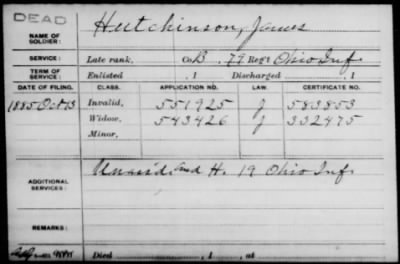 DEAD
NAME OF SOLDIER: Hutchinson, James
SERVICE: Late rank, Co. B, 79 Reg't Ohio Inf.
TERM OF SERVICE: Enlisted , 1 Discharged , 1
DATE OF FILING. CLASS. APPLICATION NO. LAW. CERTIFICATE NO.
1885 Oct 13 Invalid, 551925 J 583853
Widow, 543426 J 332475
Minor,
ADDITIONAL SERVICES: and H. 19 Ohio Inf.
REMARKS:
Died , 1 , at